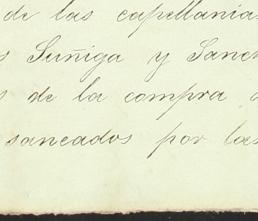 de las capellanias
Suñiga y Sanch
de la compra
saneados por las